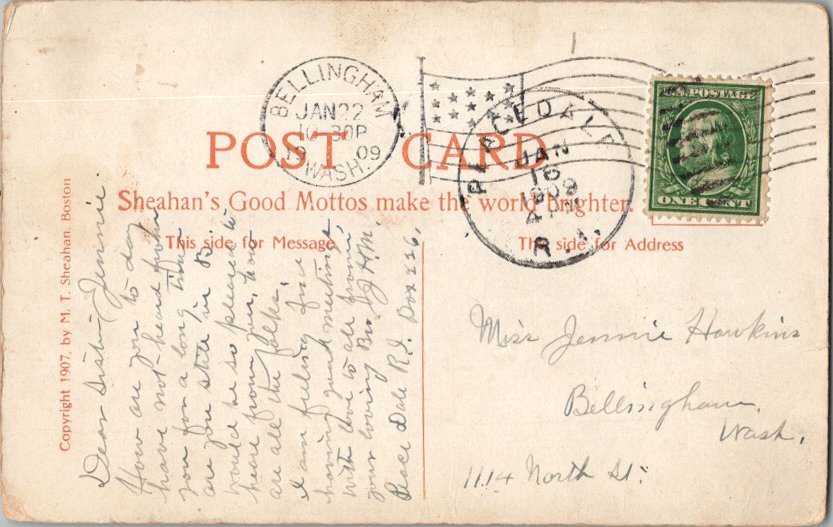 BELLINGHAM
JAN 22
10 30P
19 09
WASH.
PEACEDALE
JAN
16
1909
R.I.
POSTAGE
ONE CENT
POST CARD
Sheahan's Good Mottos make the world brighter.
This side for Message
The side for Address
Copyright 1907, by M. T. Sheahan, Boston
Dear Sister Jennie.
How are you to day
have not heard from
you for a long time
are you still in B.
would be so pleased to
hear from you, how
are all the folks.
I am feeling fine
having good meetings
with love to all from
your loving Bro
Peace Dale R.I. Box 226,
Miss Jennie Hawkins
Bellingham.
Wash.
1114 North St.